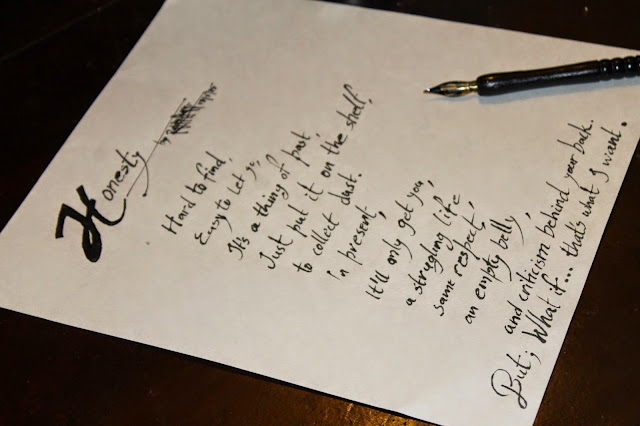 Honesty
Hard to find,
Easy to let go,
It's a thing of past
Just put it on the shelf,
to collect dust.
in present,
It'll only get you,
a strugling life
same respect,
an empty belly,
and criticism behind your back.
But; What if... that's what I want.